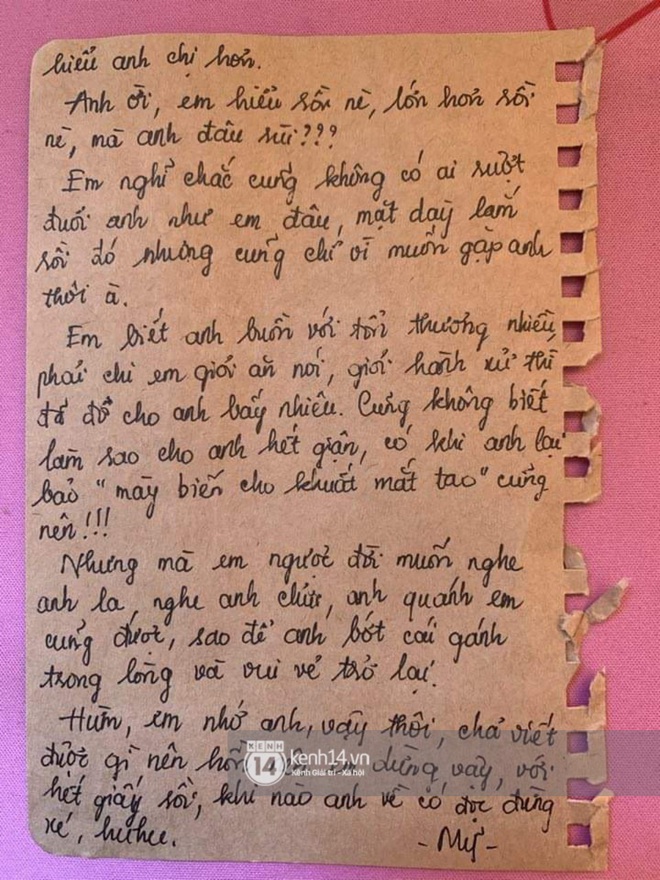 hiểu anh chị hơn.
Anh ơi, em hiểu rồi nè, lớn hơn rồi
nè, mà anh đâu rùi???
Em nghĩ chắc cũng không có ai rượt
đuổi anh như em đâu, mặt dày lắm
rồi đó nhưng cũng chỉ vì muốn gặp anh
thôi à.
Em biết anh buồn với tổn thương nhiều,
phải chi em giỏi ăn nói, giỏi hành xử thì
đã đỡ cho anh bấy nhiêu. Cũng không biết
làm sao cho anh hết giận, có khi anh lại
bảo "mày biến cho khuất mắt tao" cũng
nên!!!
Nhưng mà em ngược đời muốn nghe
anh la, nghe anh chửi, anh quánh em
cũng được, sao để anh bớt cái gánh
trong lòng và vui vẻ trở lại.
Hừm, em nhớ anh, vậy thôi, chả viết
được gì nên hồn em dừng vậy, với
hết giấy rồi, khi nào anh về có đọc đừng
xé, huhu.
-Mỹ-
KENH 14
kenh14.vn
Kênh Giải trí - Xã hội